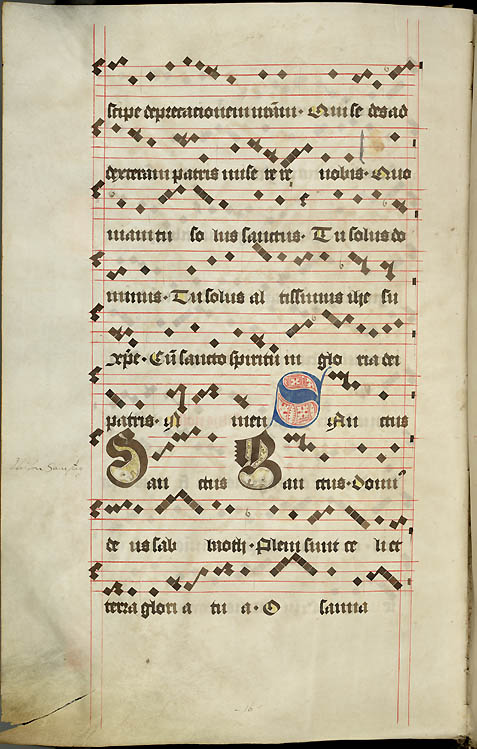 scipe deprecacionem nr̄am· Qui sedes ad
dexteram patris mise re re nobis· Quo
niam tu so lus sanctus· Tu solus do
minus· Tu solus al tissimus ihe su
xp̄e· Cū sancto spiritu in glo ria dei
patris· A men S An ctus
San ctus San ctus· domī
de us sab baoth· Pleni sunt ce li et
terra glori a tu a· O sanna